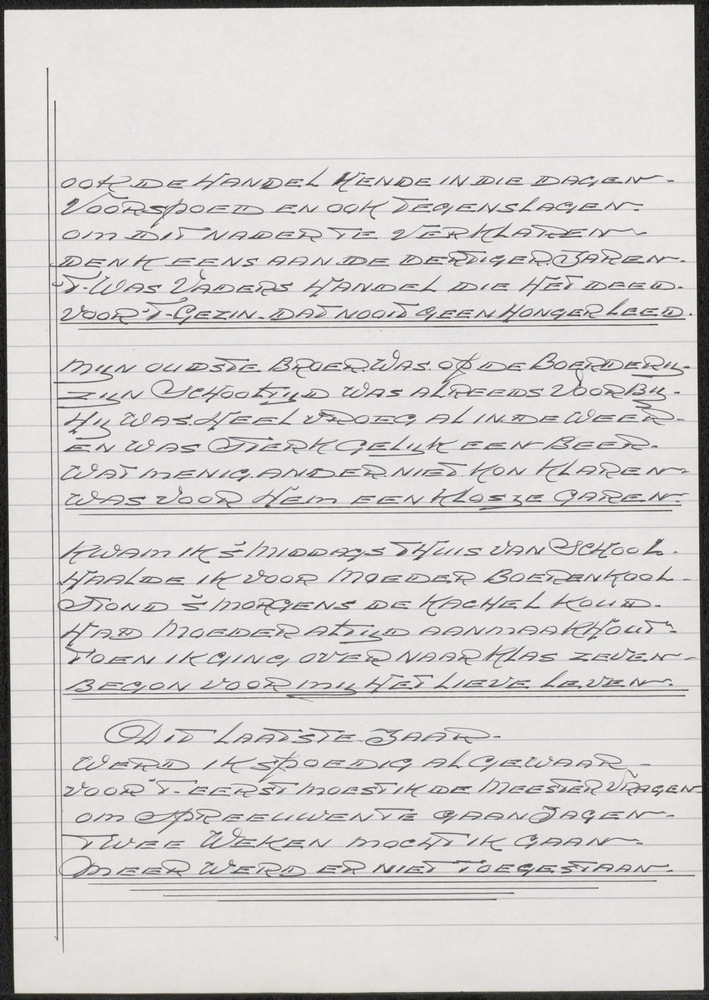 OOK DE HANDEL KENDE IN DIE DAGEN.
VOORSPOED EN OOK TEGENSLAGEN.
OM DIT NADER TE VERKLAREN
DENK EENS AAN DE DERTIGER JAREN.
'T-WAS VADERS HANDEL DIE HET DEED.
VOOR 'T-GEZIN. DAT NOOIT GEEN HONGER LEED.
MIJN OUDSTE BROER WAS OP DE BOERDERIJ.
ZIJN SCHOOLTIJD WAS ALREEDS VOORBIJ.
HIJ WAS HEEL VROEG AL IN DE WEER.
EN WAS STERK GELIJK EEN BEER.
WAT MENIG ANDER NIET KON KLAREN
WAS VOOR HEM EEN KLOSJE GAREN.
KWAM IK 'S MIDDAGS THUIS VAN SCHOOL.
HAALDE IK VOOR MOEDER BOERENKOOL.
STOND 'S MORGENS DE KACHEL KOUD.
HAD MOEDER ALTIJD AANMAAKHOUT.
TOEN IK GING OVER NAAR KLAS ZEVEN
BEGON VOOR MIJ HET LIEVE LEVEN.
DIT LAATSTE JAAR.
WERD IK SPOEDIG AL GEWAAR
VOOR 'T-EERST MOEST IK DE MEESTER VRAGEN
OM SPREEUWEN TE GAAN JAGEN
TWEE WEKEN MOCHT IK GAAN
MEER WERD ER NIET TOEGESTAAN.